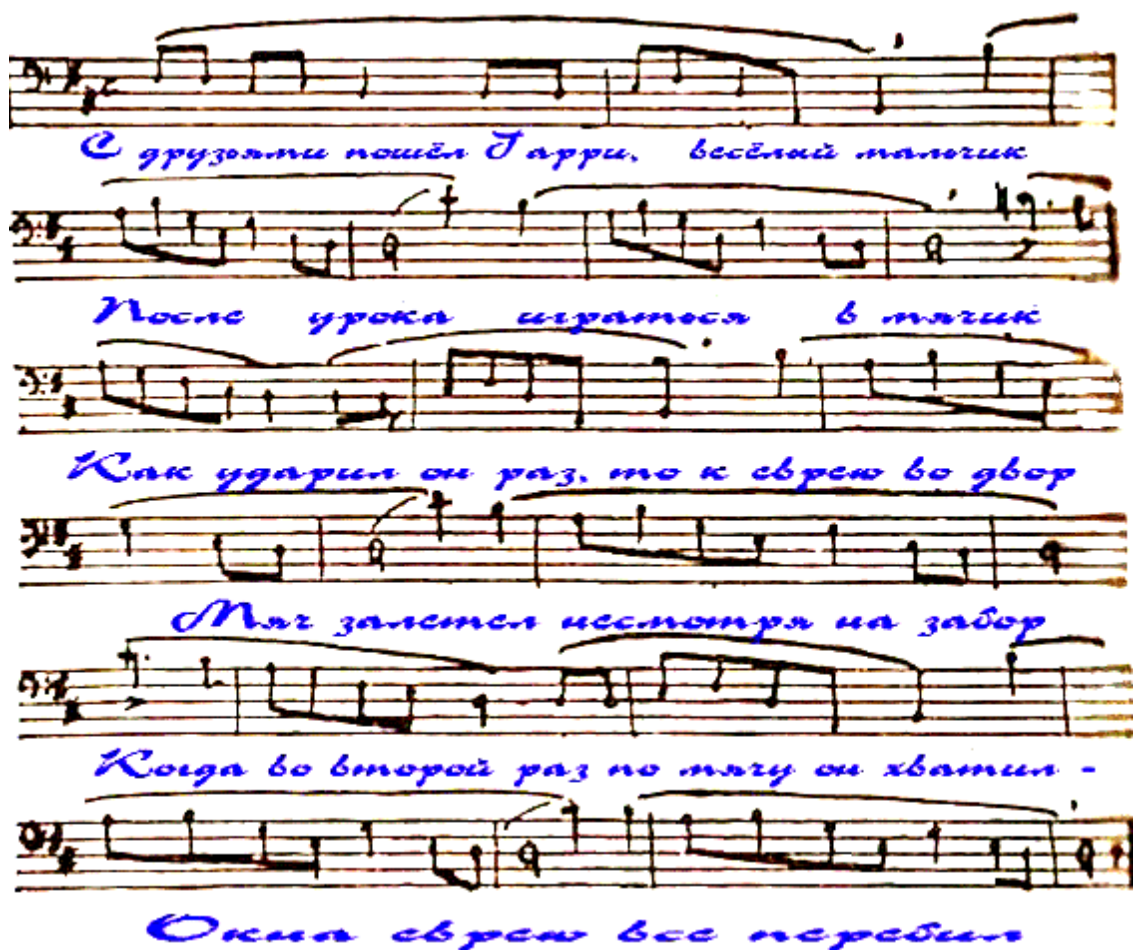 С друзьями пошёл Гарри, весёлый мальчик
После урока играться в мячик
Как ударил он раз, то к еврею во двор
Мяч залетел несмотря на забор
Когда во второй раз по мячу он хватил -
Окна еврею все перебил